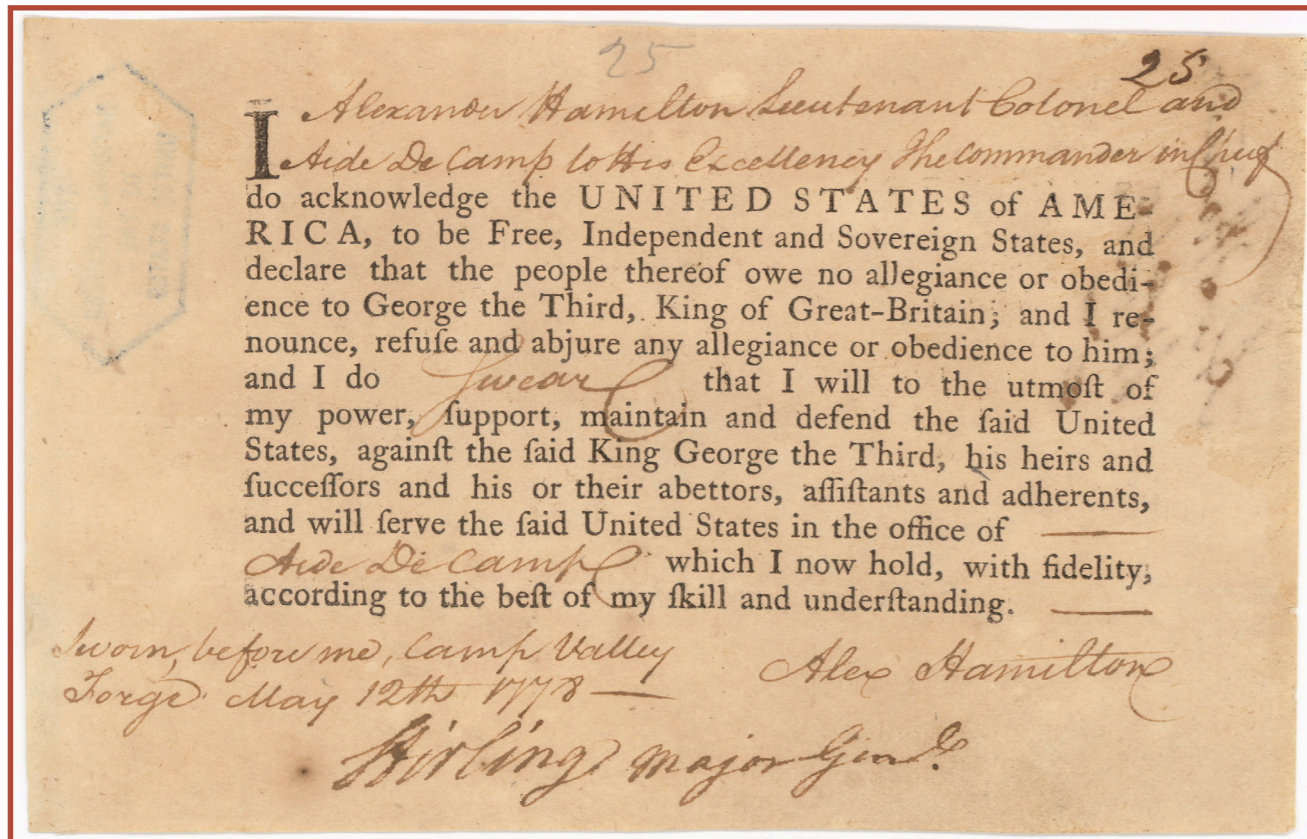 25
25
I Alexander Hamilton Lieutenant Colonel and
Aide De Camp to His Excellency The Commander in Cheif
do acknowledge the UNITED STATES of AME-
RICA, to be Free, Independent and Sovereign States, and
declare that the people thereof owe no allegiance or obedi-
ence to George the Third, King of Great-Britain; and I re-
nounce, refuſe and abjure any allegiance or obedience to him;
and I do Swear that I will to the utmoſt of
my power, ſupport, maintain and defend the ſaid United
States, againſt the ſaid King George the Third, his heirs and
ſucceſſors and his or their abettors, aſſiſtants and adherents,
and will ſerve the ſaid United States in the office of ——
Aide De Camp which I now hold, with fidelity,
according to the beſt of my ſkill and underſtanding. ——
Sworn, before me, Camp Valley
Forge May 12th 1778 —
Alex Hamilton
Stirling Major Genl.